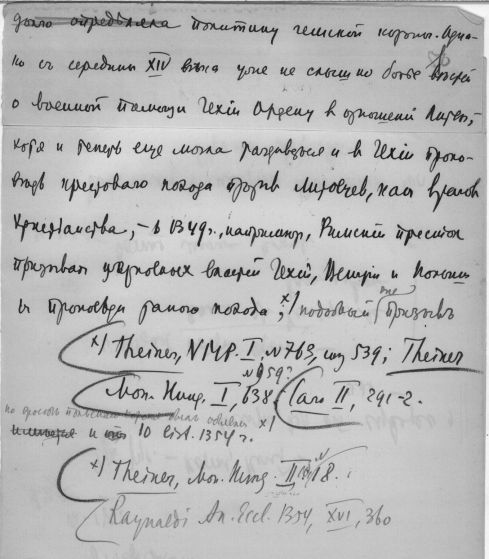 долго определяла политику чешской короны. Одна-
ко съ середины XIV вѣка уже не слышно болѣе вѣстей
о военной помощи Чехіи Ордену в отношеніи Литвы,
хотя и теперь еще могла раздаваться и в Чехіи пропо-
вѣдь крестоваго похода противъ Литовцевъ, как враговъ
христіанства, – в 1349 г., напримѣр, Римскій престол
призывал церковных властей Чехіи, Венгріи и Польши
к проповѣди такого похода; x) подобный же призывъ
x) Theiner, VMP. I, № 763, стр 539; Theiner
Mon. Hung. I, 638 № 959? Caro II, 291-2.
по просьбѣ польскаго короля был x)
и 10 1354 г.
x) Theiner, Mon. Hung. II, 18.
Raynaldi An. Eccl. 1354, XVI, 360